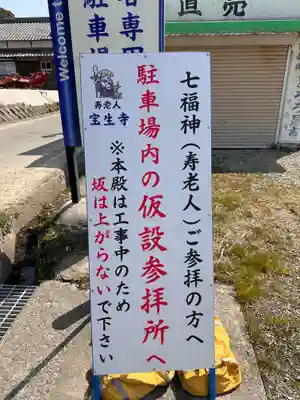 七福神（寿老人）ご参拝の方へ
駐車場内の仮設参拝所へ
※本殿は工事中のため
坂は上がらないで下さい
寿老人
宝生寺
Welcome t
駐車場
直売